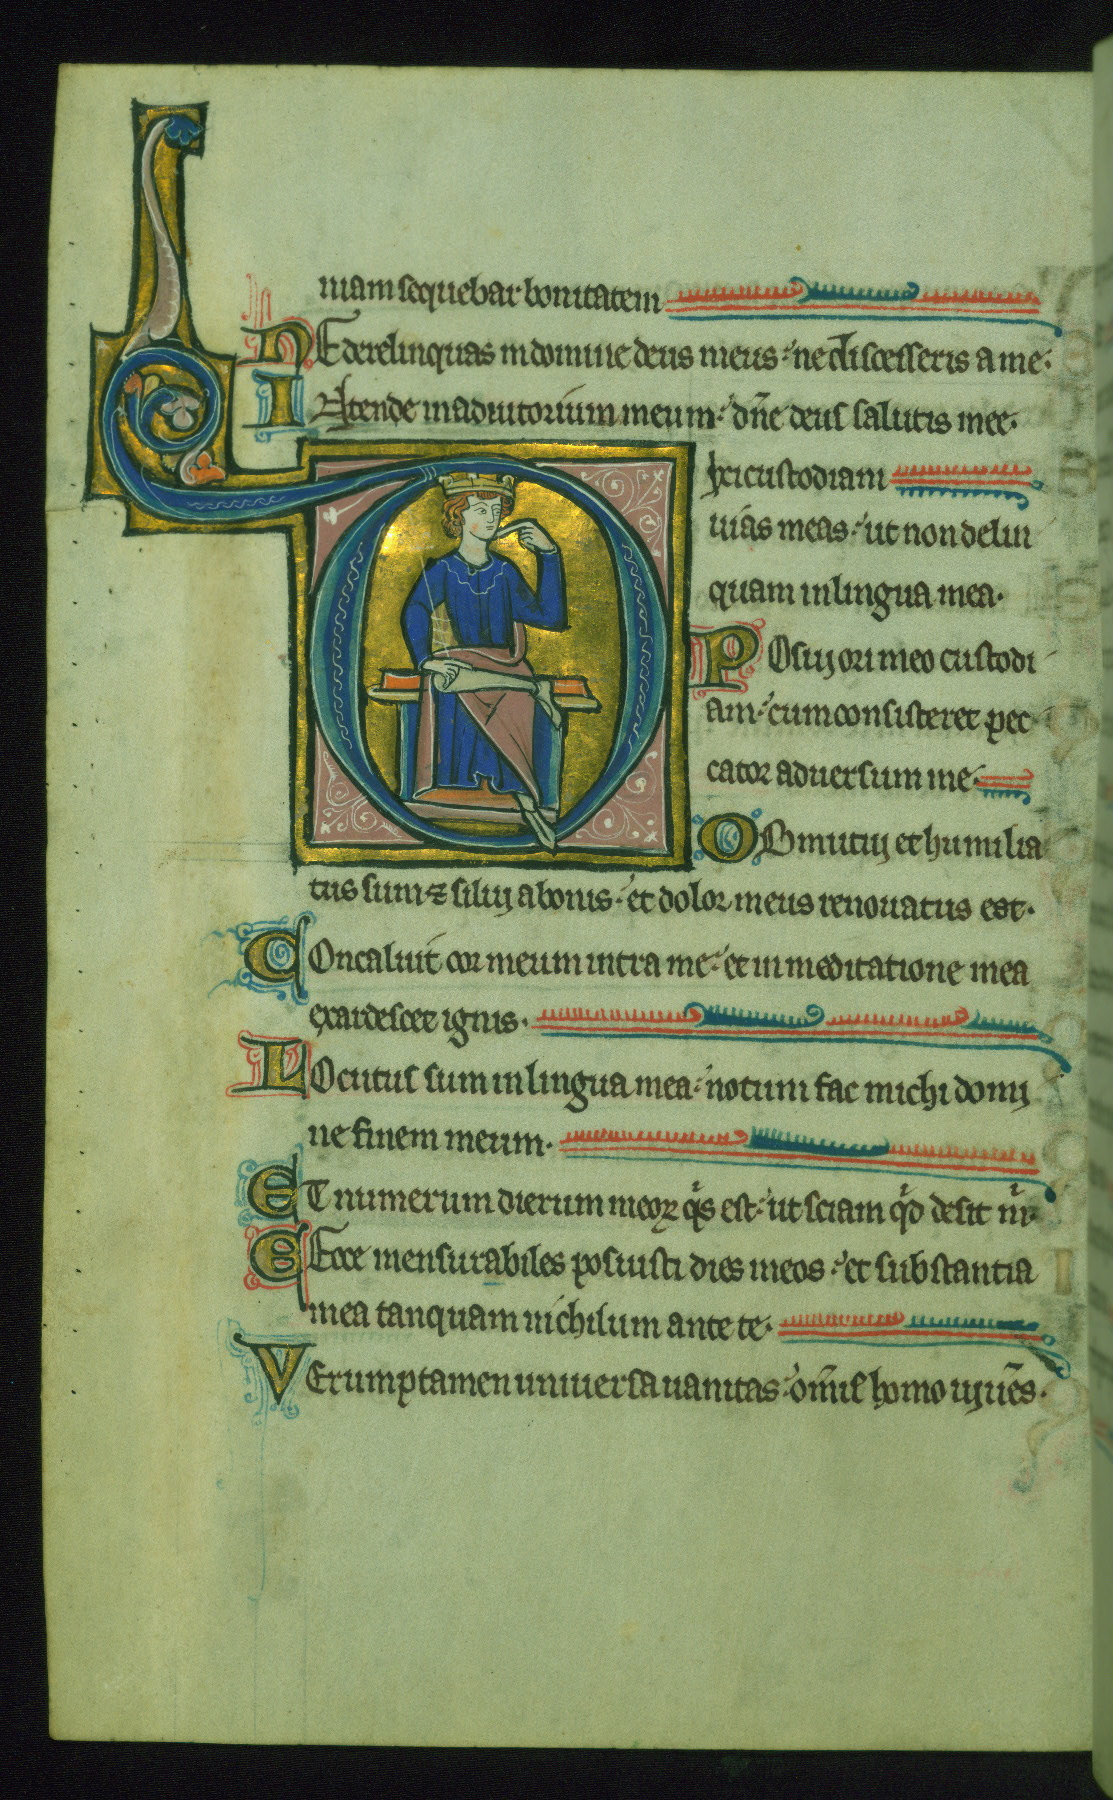 niam sequebar bonitatem
NE derelinquas me domine deus meus: ne discesseris a me.
INtende in adiutorium meum: dñe deus salutis mee.
DIxi custodiam
uias meas: ut non delin
quam in lingua mea.
POsuy ori meo custodi
am: cum consisteret pec
cator aduersum me.
OBmutuy et humilia
tus sum ⁊ siluy a bonis: et dolor meus renouatus est.
COncaluit cor meum intra me: et in meditatione mea
exardescet ignis.
LOcutus sum in lingua mea: notum fac michi domi
ne finem meum.
ET numerum dierum meoꝝ qͥs est: ut sciam qͥd desit mͥ.
EEcce mensurabiles posuisti dies meos: et substantia
mea tanquam nichilum ante te.
VErumptamen uniuersa uanitas: om̄is homo uyuēs.